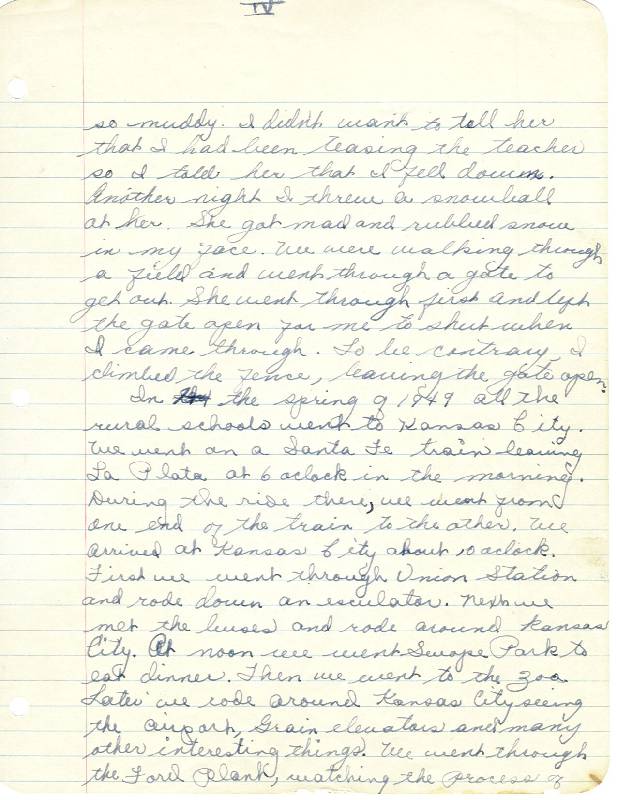 IV
so muddy. I didn't want to tell her
that I had been teasing the teacher
so I told her that I fell down.
Another night I threw a snowball
at her. She got mad and rubbed snow
in my face. We were walking through
a field and went through a gate to
get out. She went through first and left
the gate open for me to shut when
I came through. To be contrary, I
climbed the fence, leaving the gate open.
In the spring of 1949 all the
rural schools went to Kansas City.
We went on a Santa Fe train leaving
La Plata at 6 oclock in the morning.
During the ride there, we went from
one end of the train to the other. We
arrived at Kansas City about 10 oclock.
First we went through Union Station
and rode down an esculator. Next we
met the buses and rode around Kansas
City. At noon we went Swope Park to
eat dinner. Then we went to the zoo.
Later we rode around Kansas City seeing
the airport, Grain elevators and many
other interesting things. We went through
the Ford Plant, watching the process of